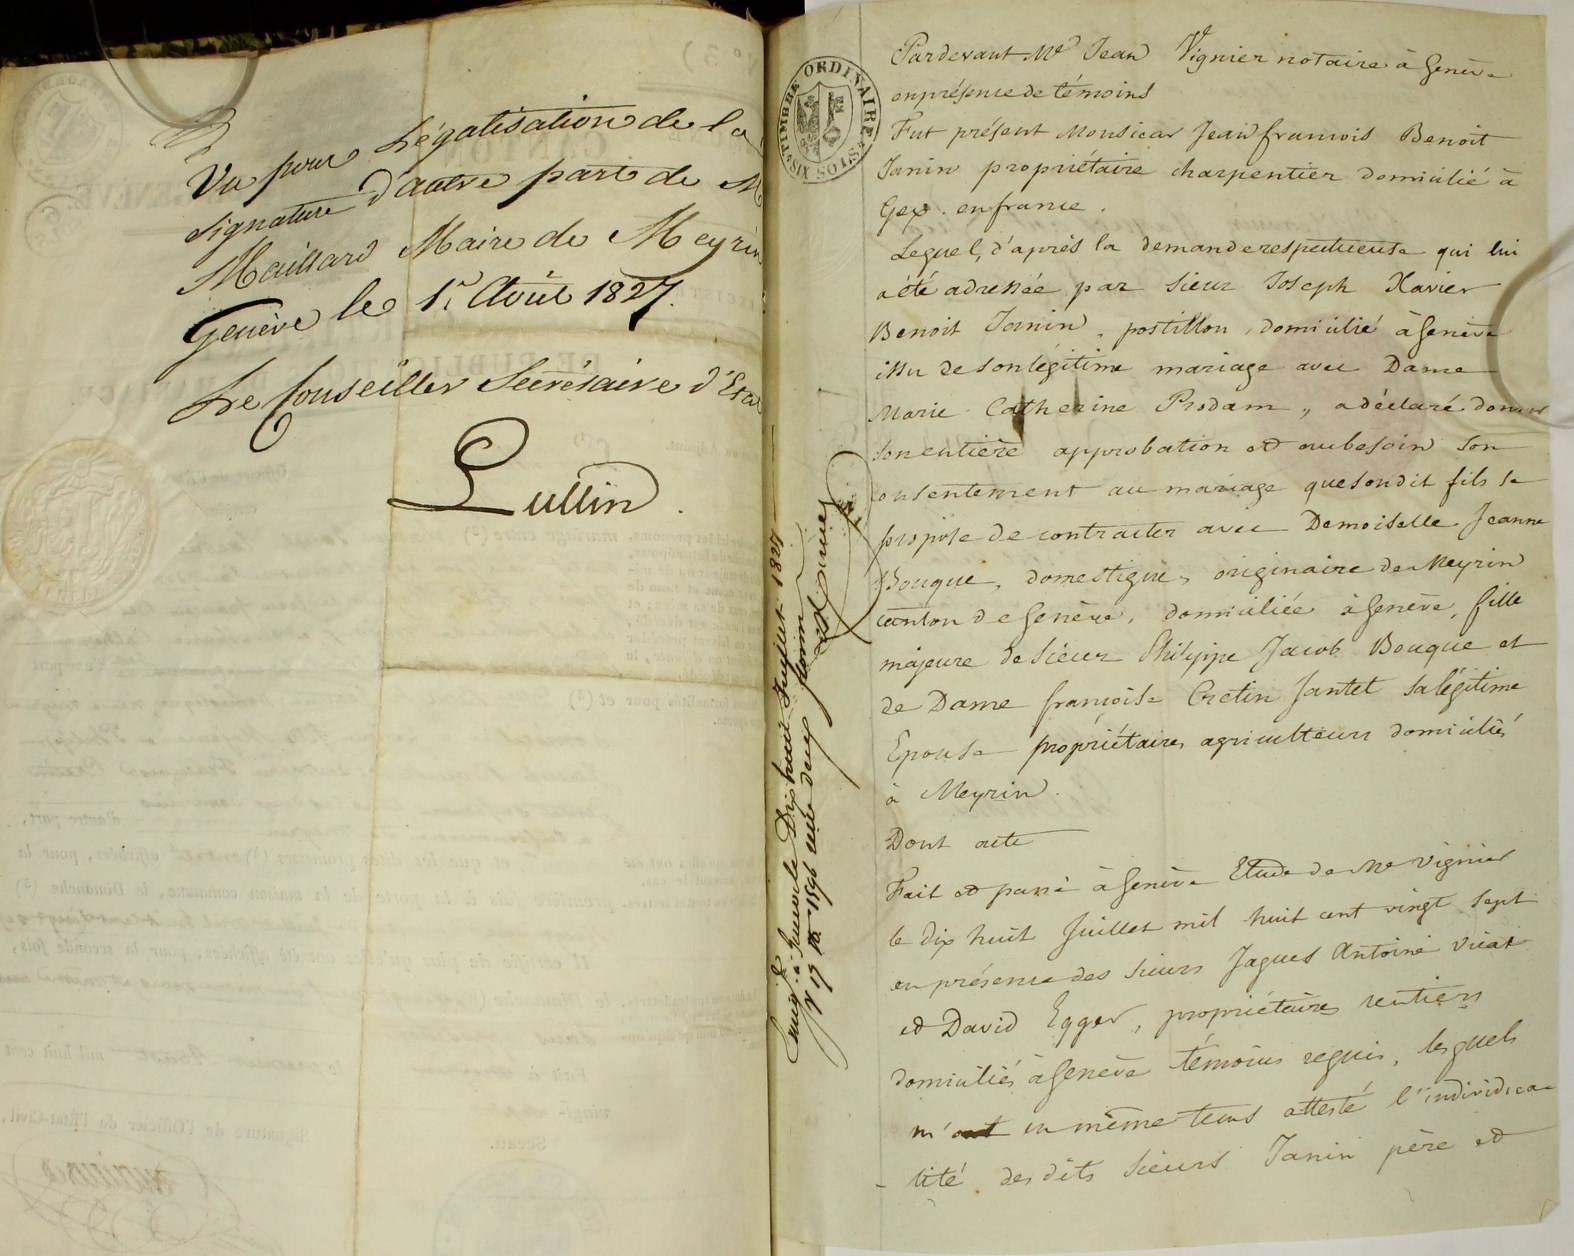 Vu pour Légalisation de la
signature d'autre part de M
Maillard Maire de Meyrin
Genève le 1r. Août 1827.
Le Conseiller Secrétaire d'Etat
Lullin.
TIMBRE ORDINAIRE
SIX SOLS
Enregé. à Genève le Dix huit Juillet 1827
Vo 17 No 1596 reçu deux florins
Pardevant Me Jean Vignier notaire à Genève
en présence de témoins
Fut présent Monsieur Jean françois Benoit
Janin propriétaire charpentier domicilié à
Gex. en france.
Lequel, d'après la demande respectueuse qui lui
a été adressée par Sieur Joseph Xavier
Benoit Janin, postillon, domicilié à Genève
issu de son légitime mariage avec Dame
Marie Catherine Prodam, a déclaré donner
son entière approbation et au besoin son
consentement au mariage que son dit fils se
propose de contracter avec Demoiselle Jeanne
Bouque, domestique, originaire de Meyrin
canton de Genève, domiciliée à Genève, fille
majeure de Sieur Philippe Jacob Bouque et
de Dame françoise Cretin Jantet sa légitime
Epouse propriétaires agriculteurs domiciliés
à Meyrin.
Dont acte
Fait et passé à Genève Etude de Me Vignier
le dix huit Juillet mil huit cent vingt sept
en présence des Sieurs Jaques Antoine Vicat
et David Egger, propriétaires rentiers
domiciliés à Genève témoins requis, lesquels
m'ont en même tems attesté l'individua-
-lité des dits Sieurs Janin père et